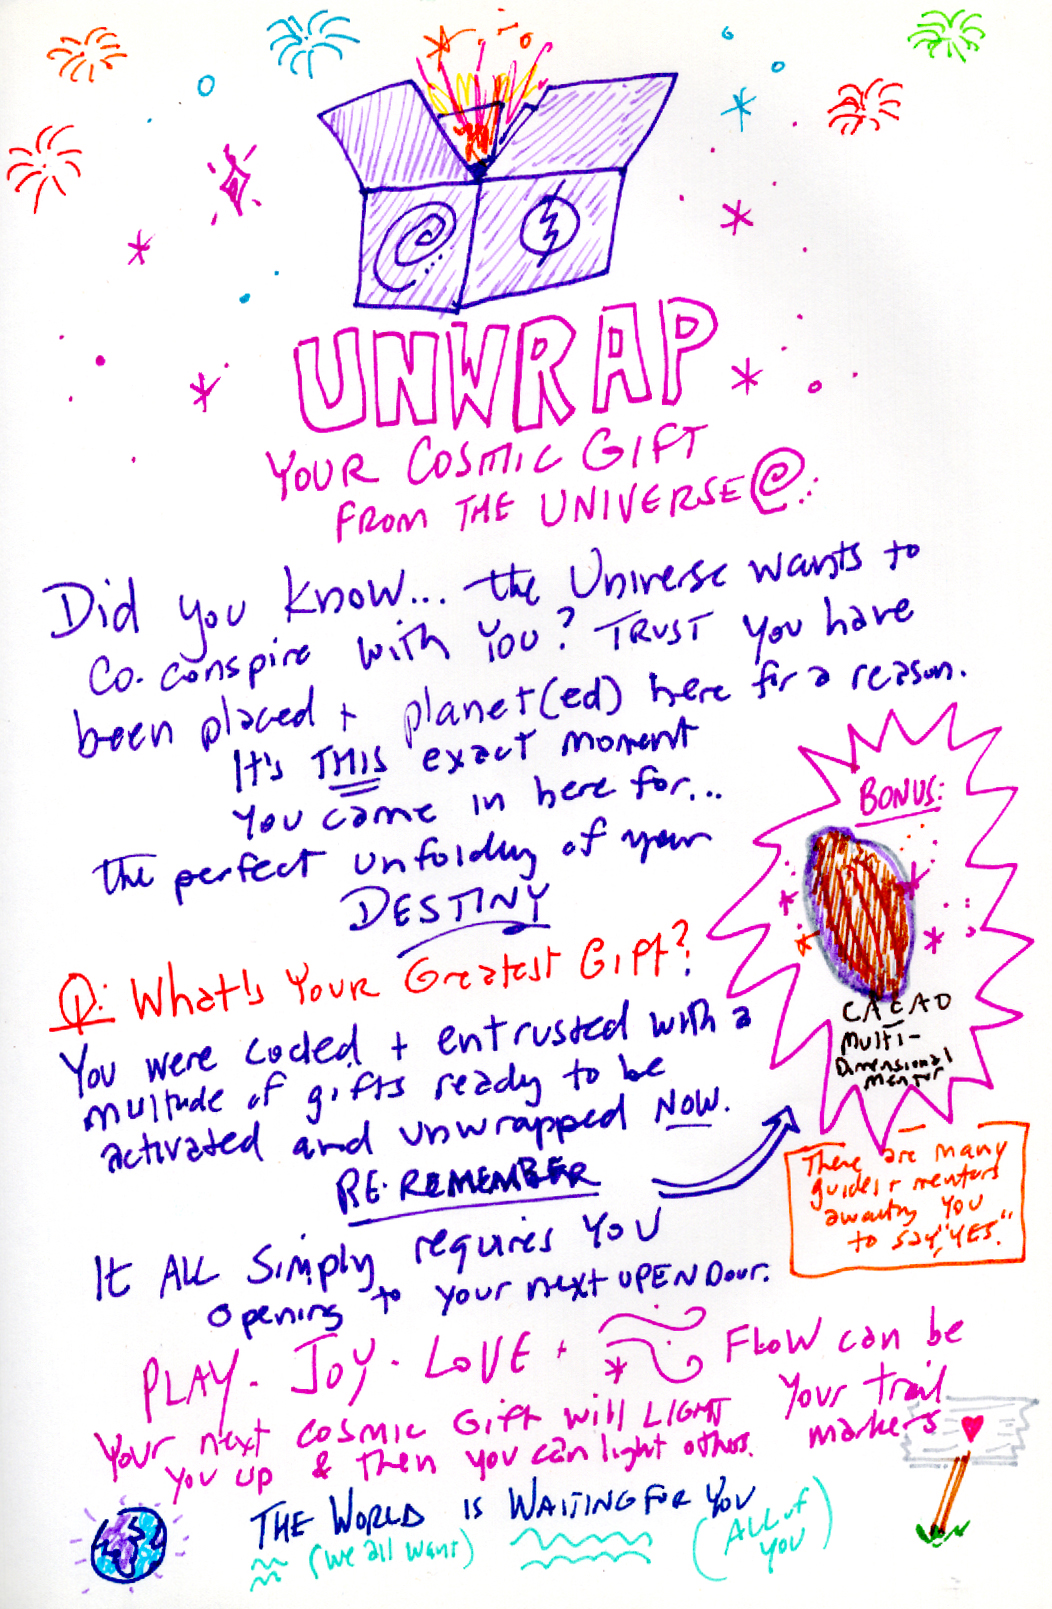 UNWRAP
YOUR COSMIC GIFT
FROM THE UNIVERSE
Did you know... the Universe wants to
Co-conspire with YOU? TRUST you have
been placed + planet(ed) here for a reason.
It's THIS exact moment
you came in here for...
the perfect unfolding of your
DESTINY
Q: What's Your Greatest Gift?
You were coded + entrusted with a
multude of gifts ready to be
activated and unwrapped NOW.
RE-REMEMBER
It ALL Simply requires YOU
opening to your next OPEN Door.
BONUS:
CACAO
Multi-
Dimensional
Mentor
There are many
guides + mentors
awaiting YOU
to say, "YES."
PLAY. JOY. LOVE + FLOW can be
Your trail
markers
Your next COSMIC Gift will LIGHT
you up & then you can light others.
THE WORLD IS WAITING FOR YOU
(we all want) (ALL of
YOU)